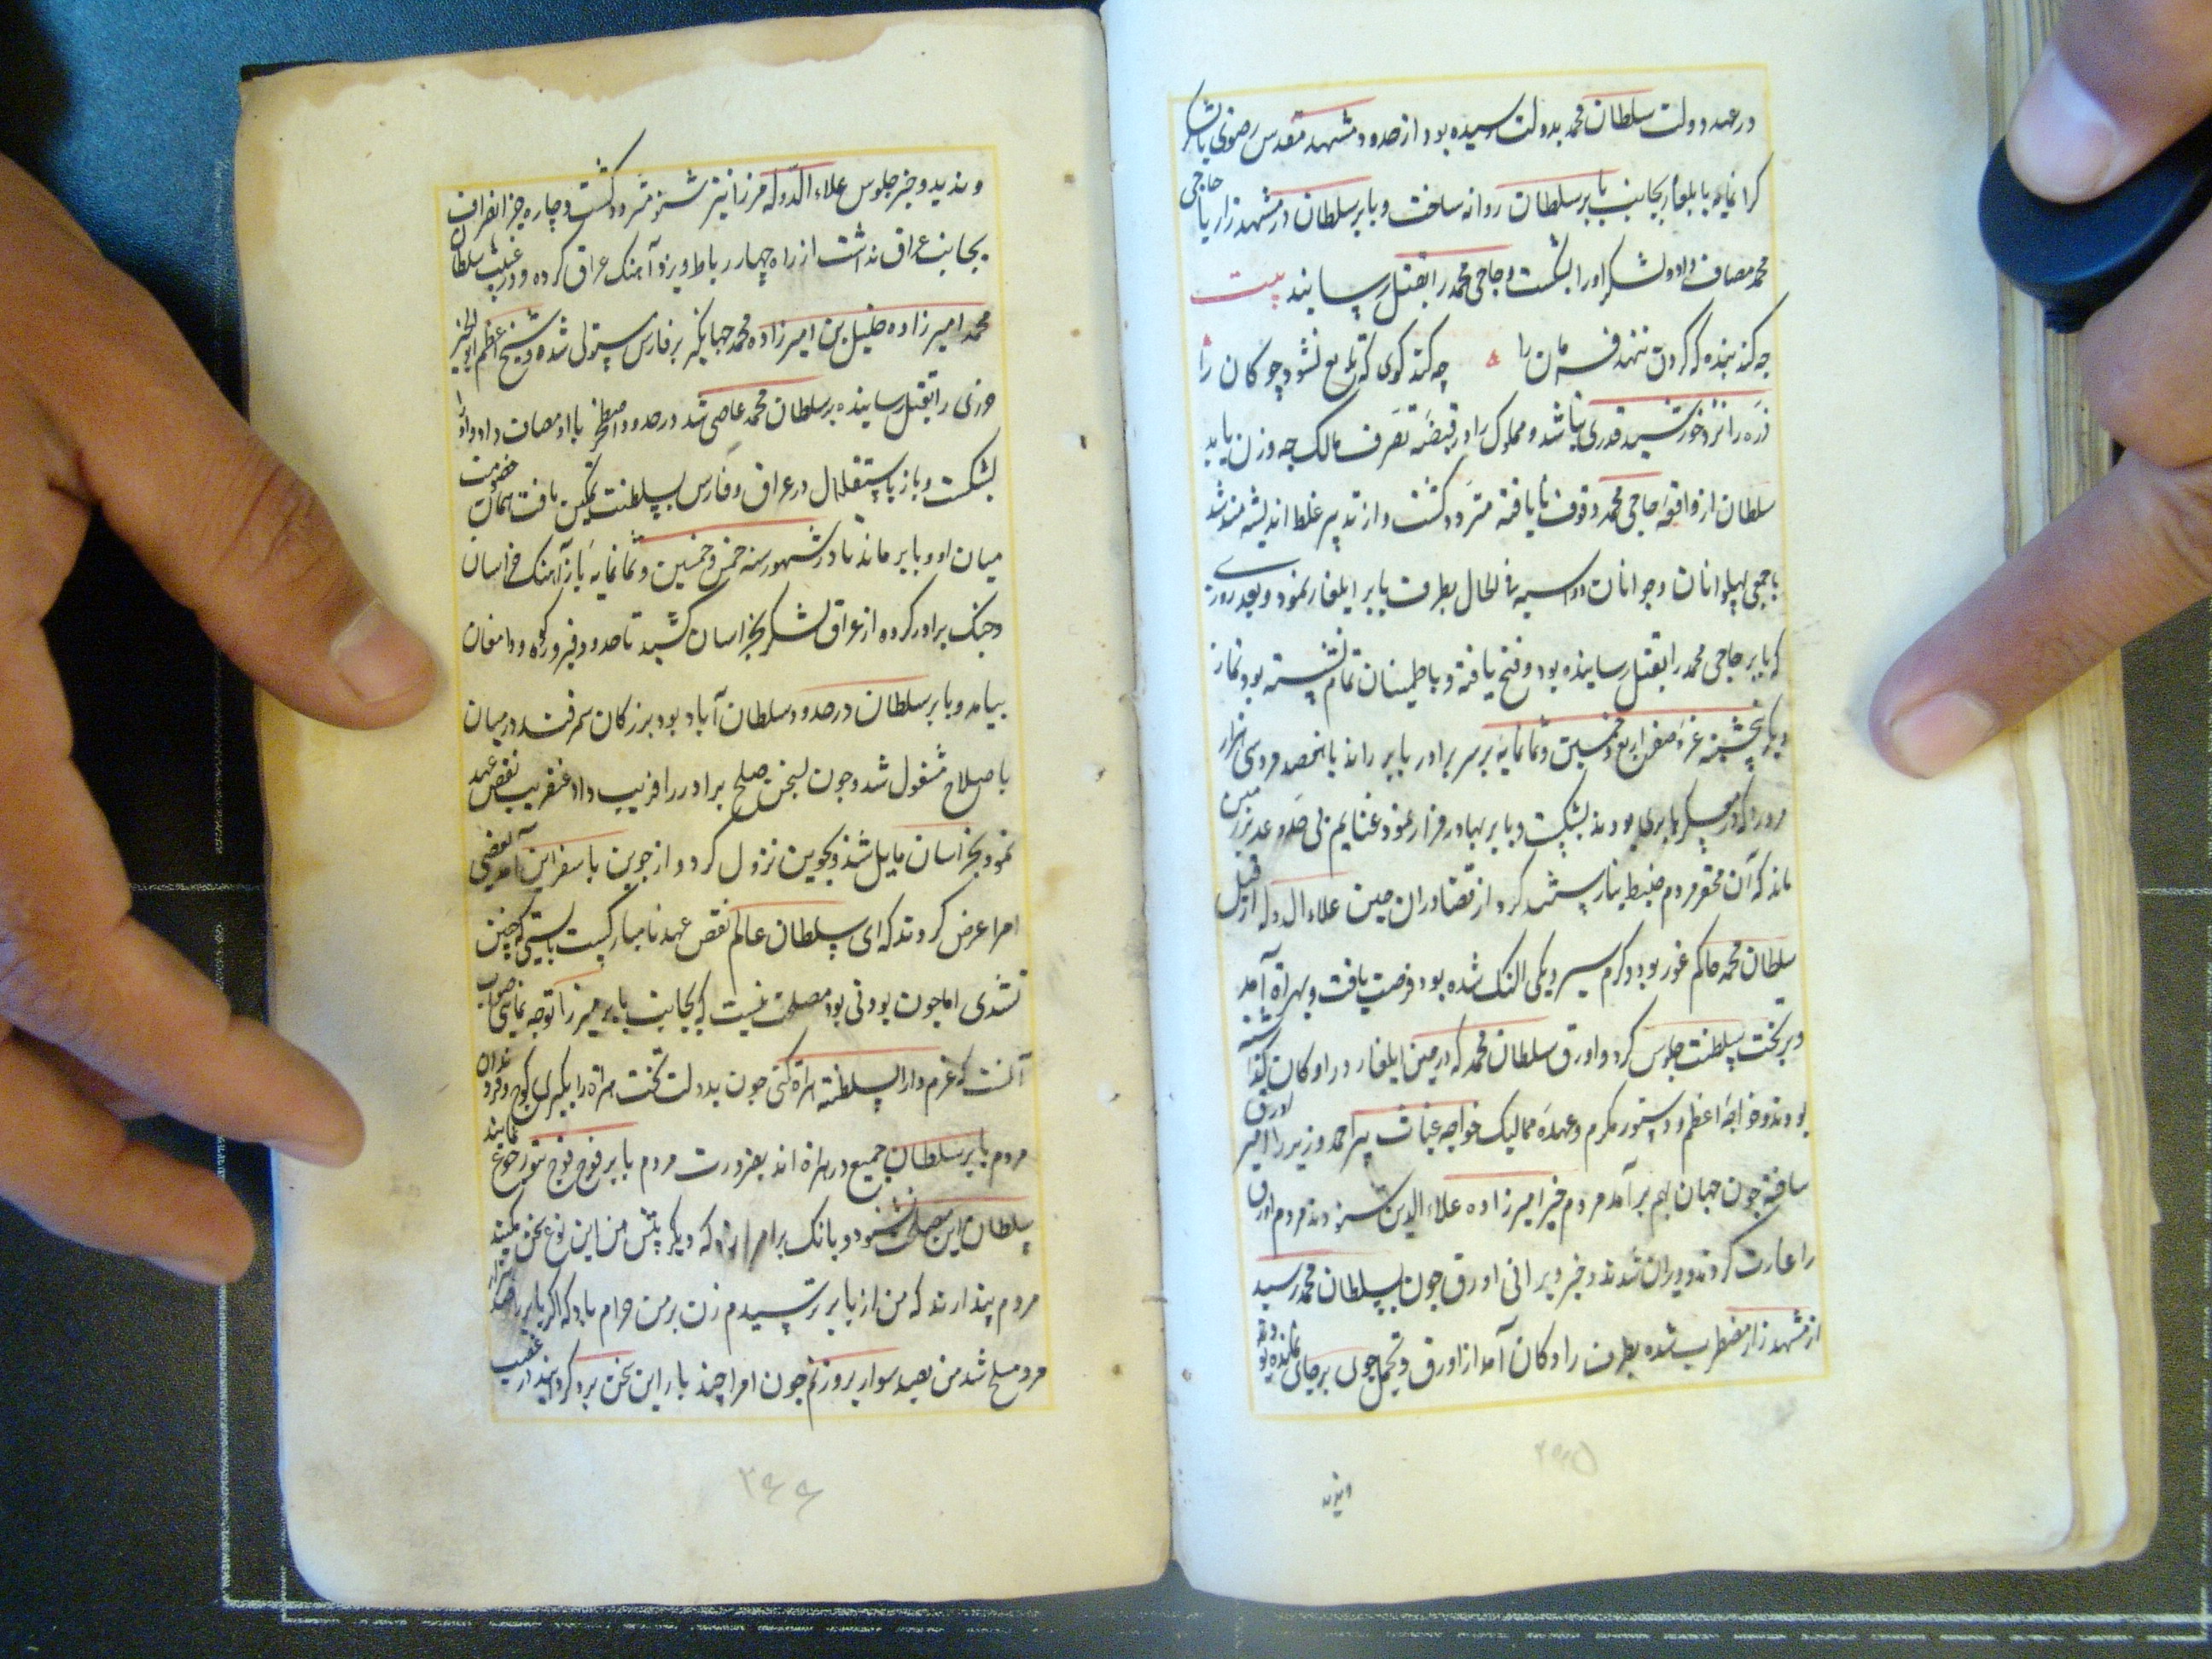 در عهد دولت سلطان محمد بدولت رسیده بود از حدود مشهد مقدس رضوی با لشکر
کرانمایه بایلغار بجانب بابر سلطان روانه ساخت و بابر سلطان در مشهد زار با حاجی
محمد مصاف داد و لشکر او را بشکست و حاجی محمد را بقتل رسانید بیت
چه کند بنده که گردن ننهد فرمان را چه کند کوی که تابع نشود چوکان را
ذره را نزد خورشید قدری نباشد و مملوک را در قبضه تصرف مالک چه وزن باید
سلطان از واقعه حاجی محمد وقوف نایافته متردد کشت و از تدبیر غلط اندیشه مند شد
با جمعی پهلوانان و جوانان دو اسبه فی الحال بطرف بابر ایلغار نمود و بعد روزی
که بابر حاجی محمد را بقتل رسانیده بود و فتح یافته و باطمینان تمام نشسته بود نماز
دیگر پنجشنبه غره صفر اربع و خمسین و ثمانمایه بر سر برادر بابر راند با پانصد مرد سی هزار
مرد را که در معسکر بابری بودند بشکست و بابر بهادر فرار نمود و غنایم بی حد و عد بر زمین
ماند که آن محقر مردم ضبط نیارستند کرد از قضا در آن حین علاء الدوله از قبل
سلطان محمد حاکم غور بود و کرم سیر و یکی النک شده بود فرصت یافت و بهراة آمد
و بر تخت سلطنت جلوس کرد و اورق سلطان محمد که در حین ایلغار در راوکان گذاشته
بودند و خواجه اعظم و دستور مکرم و عهده ممالیک خواجه غیاث پیر احمد وزیر را امیر اورق
ساخته چون جهان بهم برآمد مردم خبر امیرزاده علاء الدین شنودند مردم اورق
را غارت کردند و ویران شدند و خبر ویرانی اورق چون بسلطان محمد رسید
از مشهد زار مضطرب شده بطرف راوکان آمد از اورق و تجمل چون برجای نمانده بود
وندید
وندید و خبر جلوس علاء الدوله مرزا نیز شنود متردد کشت و چاره جز انصراف
بجانب عراق نداشت از راه چهار رباط و یزد آهنک عراق کرده و در غیبت سلطان
محمد امیرزاده خلیل بن امیرزاده محمد جهانگیر بر فارس مستولی شده و شیخ اعظم ابو الخیر
جزری را بقتل رسانیده بر سلطان محمد عاصی شد در حدود اصطخر با او مصاف داد و او را
بشکست و باز باستقلال در عراق و فارس بسلطنت تمکین یافت همان خصومت
میان او و بابر ماند تا در شهور سنه خمس و خمسین و ثمانمایه باز آهنک خراسان
و جنک برادر کرده از عراق لشکر بخراسان کشید تا حدود فیروزکوه و دامغان
بیامد و بابر سلطان در حدود سلطان آباد بود بزرکان سمرقند در میان
باصلاح مشغول شد و چون بسخن صلح برادر را فریب داد عنقریب نقض عهد
نمود بخراسان مایل شد و بجوین نزول کرد و از جوین باسفراین آمد بعضی
امرا عرض کردند که ای سلطان عالم نقض عهد نامبارکست بایستی که چنین
نشدی اما چون بودنی بود مصلحت نیست که بجانب بابر میرزا توجه نمایی صواب
آنست که عزم دار السلطنه هراة کنی چون بدولت تخت هراة را بگیری کوچ و فرزندان
مردم بابر سلطان جمیع در هراة اند بضرورت مردم بابر فوج فوج بتو رجوع نمایند
سلطان این مصلحت نشنود و بانک بر امرا زد که دیگر پیش من این نوع سخن مگویید
مردم پندارند که من از بابر ترسیدم زن بر من حرام باد که اکر بابر با صد هزار
مرد مسلح شد من بصد سوار بر وزنم چون امرا چند بار این سخن برد کردانید در غضب
۳۹۵
۳۹۶